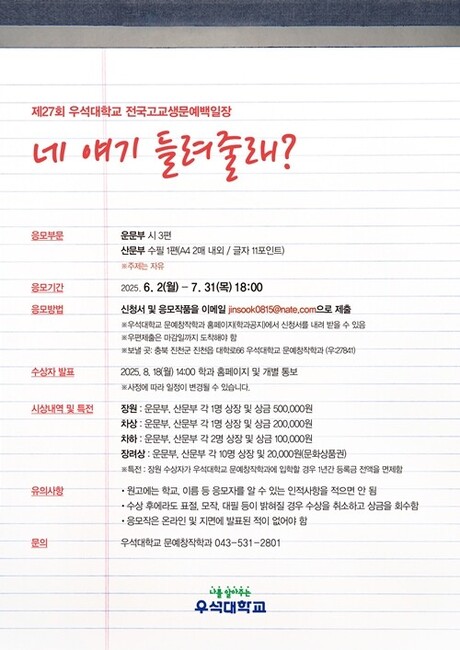 제27회 우석대학교 전국고교생문예백일장
네 얘기 들려줄래?
응모부문 운문부 시 3편
산문부 수필 1편(A4 2매 내외 / 글자 11포인트)
※주제는 자유
응모기간 2025. 6. 2(월) - 7. 31(목) 18:00
응모방법 신청서 및 응모작품을 이메일 jinsook0815@nate.com으로 제출
※우석대학교 문예창작학과 홈페이지(학과공지)에서 신청서를 내려 받을 수 있음
※우편제출은 마감일까지 도착해야 함
※보낼 곳: 충북 진천군 진천읍 대학로66 우석대학교 문예창작학과 (우:27841)
수상자 발표 2025. 8. 18(월) 14:00 학과 홈페이지 및 개별 통보
※사정에 따라 일정이 변경될 수 있습니다.
시상내역 및 특전 장원 : 운문부, 산문부 각 1명 상장 및 상금 500,000원
차상 : 운문부, 산문부 각 1명 상장 및 상금 200,000원
차하 : 운문부, 산문부 각 2명 상장 및 상금 100,000원
장려상 : 운문부, 산문부 각 10명 상장 및 20,000원(문화상품권)
※특전 : 장원 수상자가 우석대학교 문예창작학과에 입학할 경우 1년간 등록금 전액을 면제함
유의사항 • 원고에는 학교, 이름 등 응모자를 알 수 있는 인적사항을 적으면 안 됨
• 수상 후에라도 표절, 모작, 대필 등이 밝혀질 경우 수상을 취소하고 상금을 회수함
• 응모작은 온라인 및 지면에 발표된 적이 없어야 함
문의 우석대학교 문예창작학과 043-531-2801
나를 알아주는
우석대학교